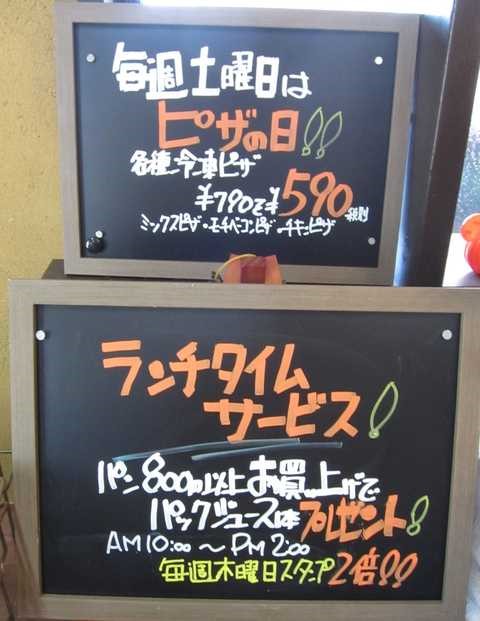 毎週土曜日は
ピザの日!!
各種冷凍ピザ
¥790を¥590税別
ミックスピザ・モチベーコンピザ・チキンピザ
ランチタイム
サービス!
パン800円以上お買い上げで
パックジュース1本プレゼント!
AM10:00〜PM2:00
毎週木曜日スタンプ2倍!!